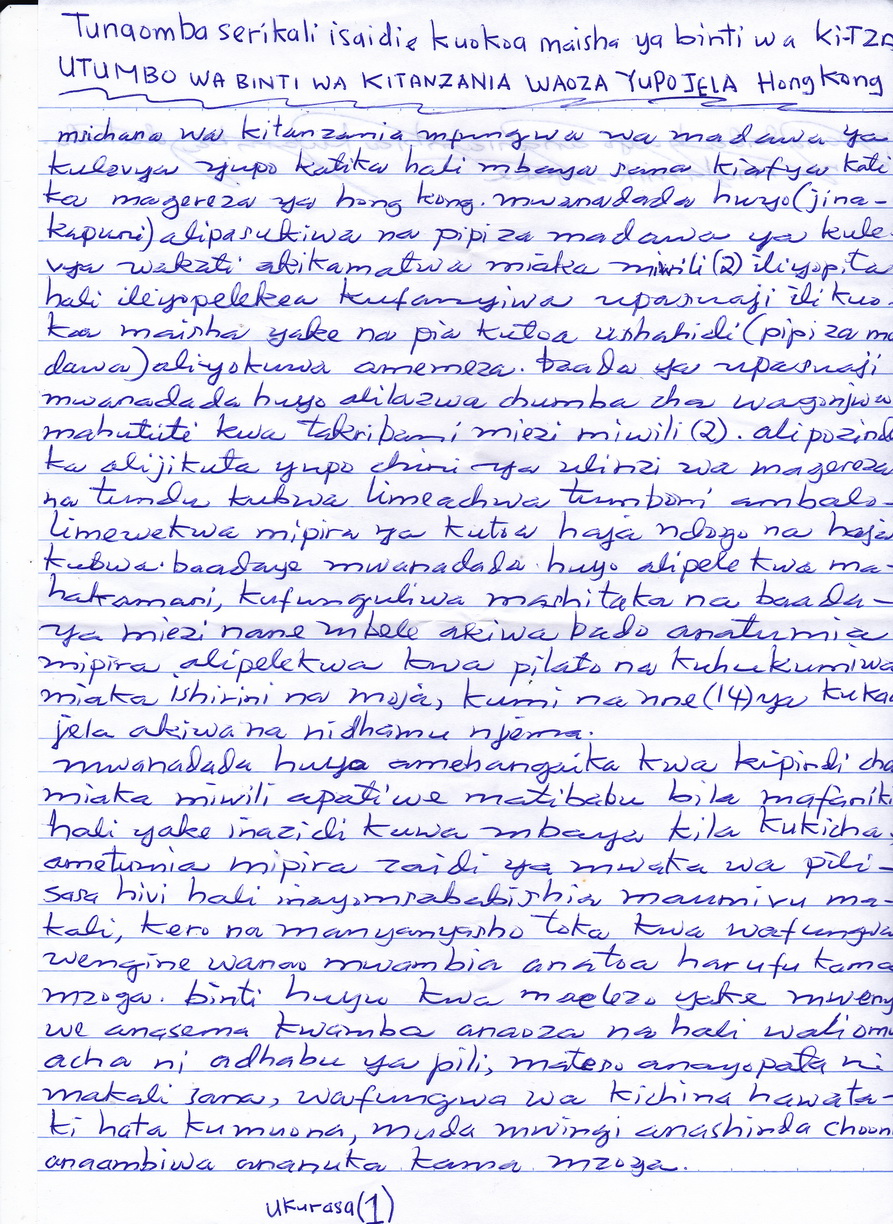 Tunaomba serikali isaidie kuokoa maisha ya binti wa Ki-TZA
UTUMBO WA BINTI WA KITANZANIA WAOZA YUPO JELA Hong Kong
msichana wa kitanzania mfungwa wa madawa ya
kulevya yupo katika hali mbaya sana kiafya kati
ka magereza ya hong kong. mwanadada huyo (jina-
kapuni) alipasukiwa na pipi za madawa ya kule-
vya wakati akikamatwa miaka miwili (2) iliyopita
hali iliyopelekea kufanyiwa upasuaji ili kuo
koa maisha yake na pia kutoa ushahidi (pipi za ma
dawa) aliyokuwa amemeza. baada ya upasuaji
mwanadada huyo alilazwa chumba cha wagonjwa
mahututi kwa takribani miezi miwili (2). alipozindu
ka alijikuta yupo chini ya ulinzi wa magereza
na tundu kubwa limeachwa tumboni ambalo
limewekwa mipira ya kutoa haja ndogo na haja
kubwa. baadaye mwanadada huyo alipelekwa ma-
hakamani, kufunguliwa mashitaka na baada-
ya miezi nane mbele akiwa bado anatumia
mipira alipelekwa kwa pilato na kuhukumiwa
miaka ishirini na moja, kumi na nne (14) ya kukaa
jela akiwa na nidhamu njema.
mwanadada huyo amehangaika kwa kipindi cha
miaka miwili apatiwe matibabu bila mafaniki
hali yake inazidi kuwa mbaya kila kukicha,
ametumia mipira zaidi ya mwaka wa pili-
sasa hivi hali inayomsababishia maumivu ma-
kali, kero na manyanyasho toka kwa wafungwa
wengine wanao mwambia anatoa harufu kama
mzoga. binti huyu kwa maelezo yake mweny
we anasema kwamba anaoza na hali waliomu
acha ni adhabu ya pili, mateso anayopata ni
makali sana, wafungwa wa kichina hawata-
ki hata kumuona, muda mwingi anashinda chooni
anaambiwa ananuka kama mzoga.
Ukurasa (1)